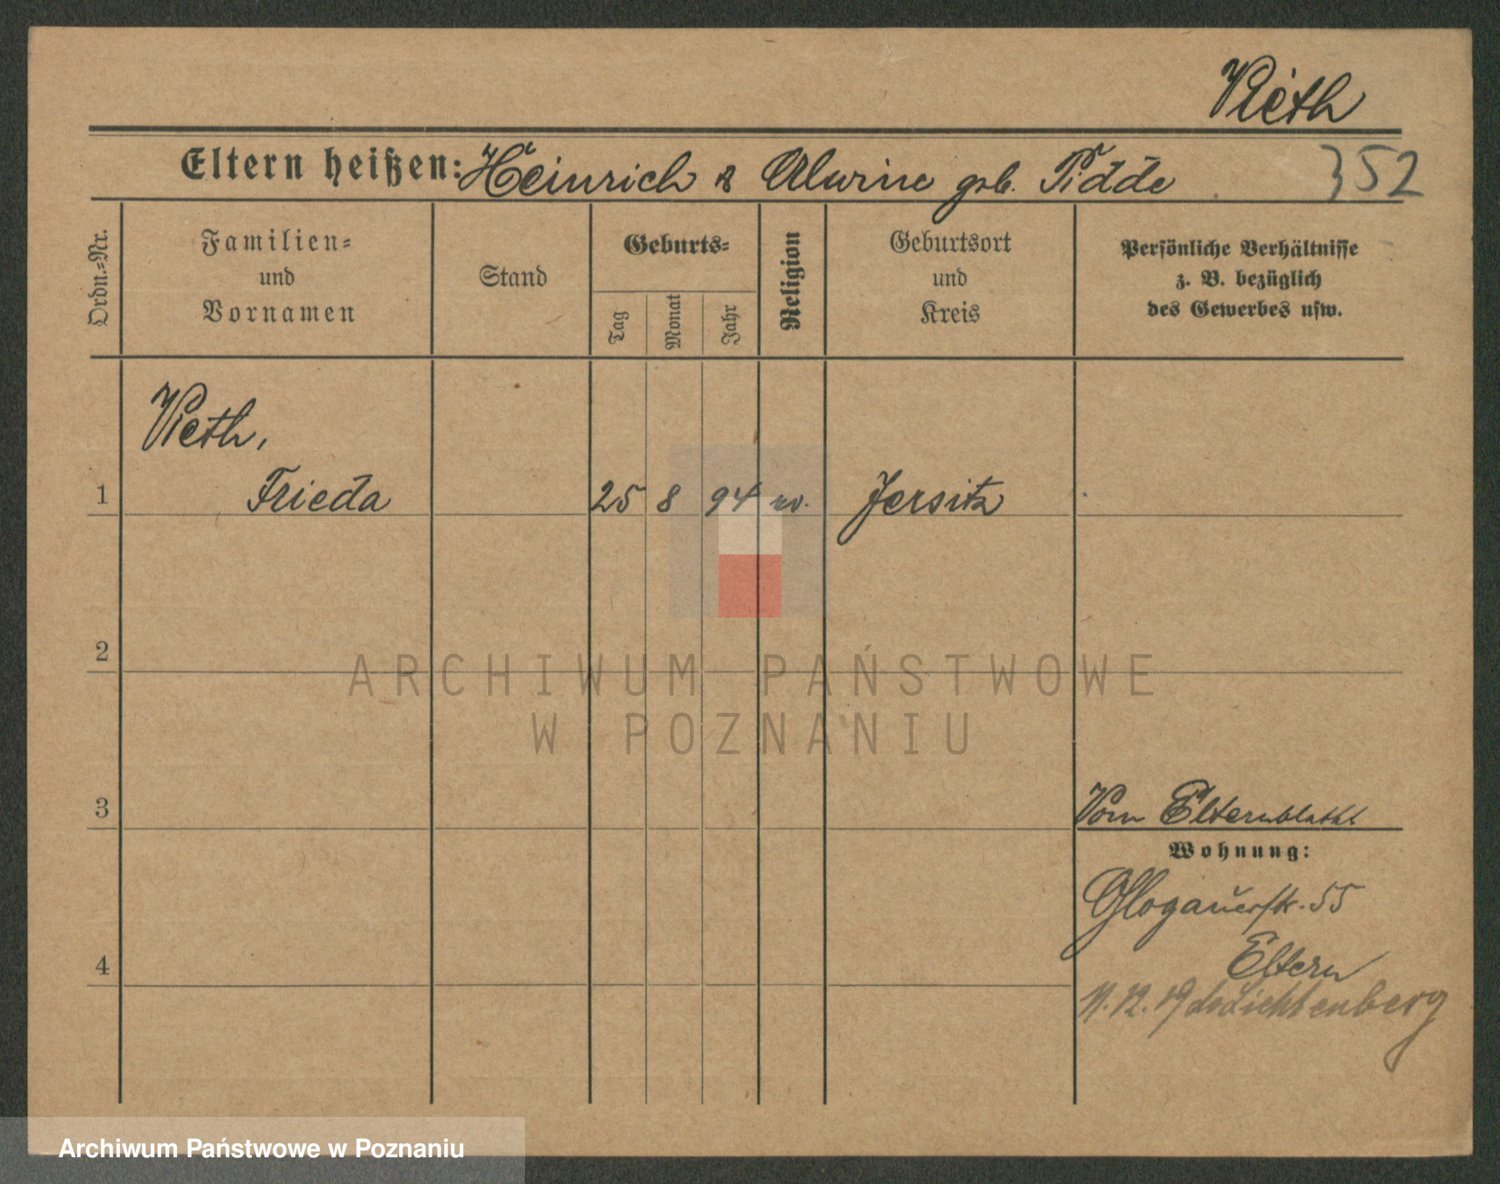 Vieth
Eltern heißen: Heinrich & Alwine geb. Tidde 352
Ordn.=Nr.
Familien=
und
Vornamen
Stand
Geburts=
Tag
Monat
Jahr
Religion
Geburtsort
und
Kreis
Persönliche Verhältnisse
z. B. bezüglich
des Gewerbes usw.
Vieth,
1 Frieda 25 8 94 ev. Jersitz
2
ARCHIWUM PAŃSTWOWE
W POZNANIU
3 Vom Elternblatte
Wohnung:
Glogauerstr. 55
4 Eltern
12. 19 Lichtenberg
Archiwum Państwowe w Poznaniu